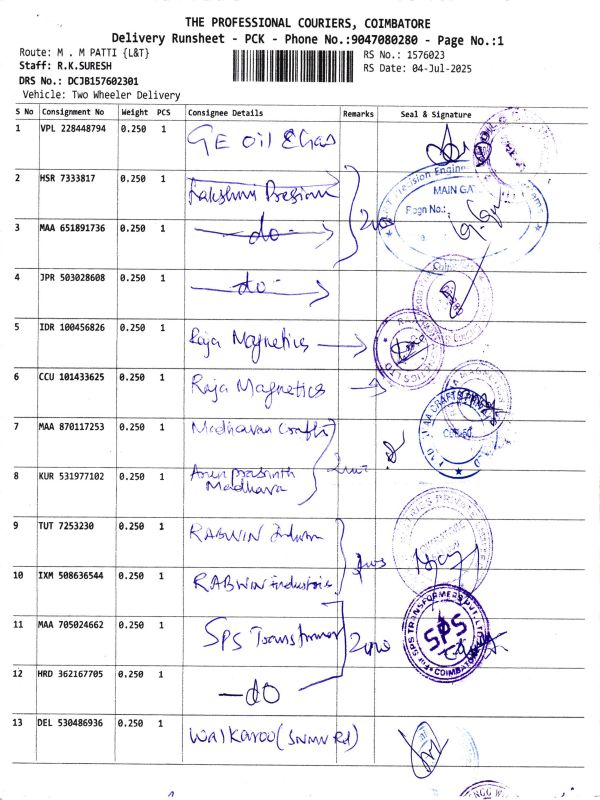 THE PROFESSIONAL COURIERS, COIMBATORE
Delivery Runsheet - PCK - Phone No.:9047080280 - Page No.:1
Route: M . M PATTI {L&T}
RS No.: 1576023
Staff: R.K.SURESH
RS Date: 04-Jul-2025
DRS No.: DCJB157602301
Vehicle: Two Wheeler Delivery
S No Consignment No Weight PCS Consignee Details Remarks Seal & Signature
1 VPL 228448794 0.250 1 GE Oil & Gas
2 HSR 7333817 0.250 1 Lakshmi Precision
MAIN GA
Regn No.:
3 MAA 651891736 0.250 1 -do-
4 JPR 503028608 0.250 1 -do-
5 IDR 100456826 0.250 1 Raja Magnetics
6 CCU 101433625 0.250 1 Raja Magnetics
7 MAA 870117253 0.250 1 Madhavan Crafts
8 KUR 531977102 0.250 1 Arun prasanth
Madhava
9 TUT 7253230 0.250 1 RABWIN Industri
10 IXM 508636544 0.250 1 RABWIN industrie
11 MAA 705024662 0.250 1 SPS Transformer
SPS TRANSFORMERS PVT. LTD
SPS
COIMBATORE
12 HRD 362167705 0.250 1 -do
13 DEL 530486936 0.250 1 Walkaroo (SNMV Rd)